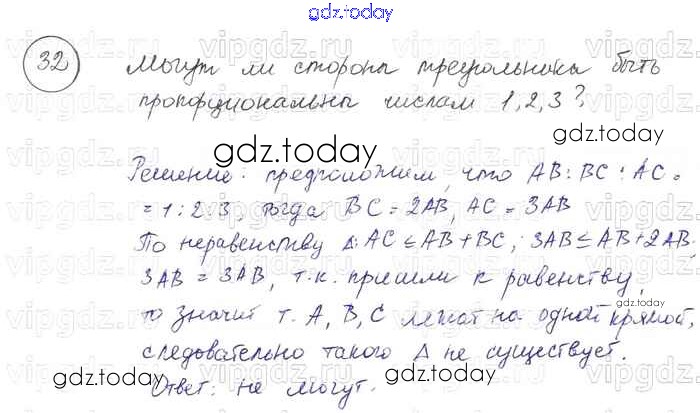 gdz.today
32 Могут ли стороны треугольника быть
пропорциональны числам 1, 2, 3?
gdz.today
Решение: предположим, что AB : BC : AC =
= 1 : 2 : 3, тогда BC = 2AB, AC = 3AB
По неравенству Δ: AC ≤ AB + BC; 3AB ≤ AB + 2AB,
3AB = 3AB, т.к. пришли к равенству,
gdz.today
то значит т. A, B, C лежат на одной прямой,
следовательно такого Δ не существует.
gdz.today
gdz.today
Ответ: не могут.